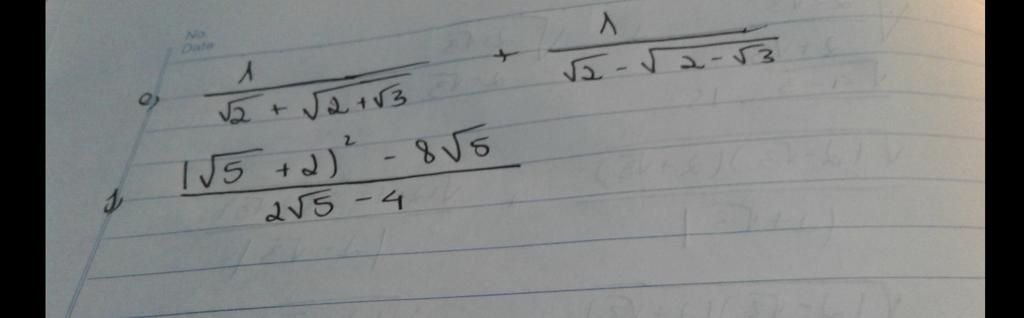 No.
Date
c, 1/(√2 + √(2+√3)) + 1/(√2 - √(2-√3))
d, ((√5 + 2)² - 8√5)/(2√5 - 4)